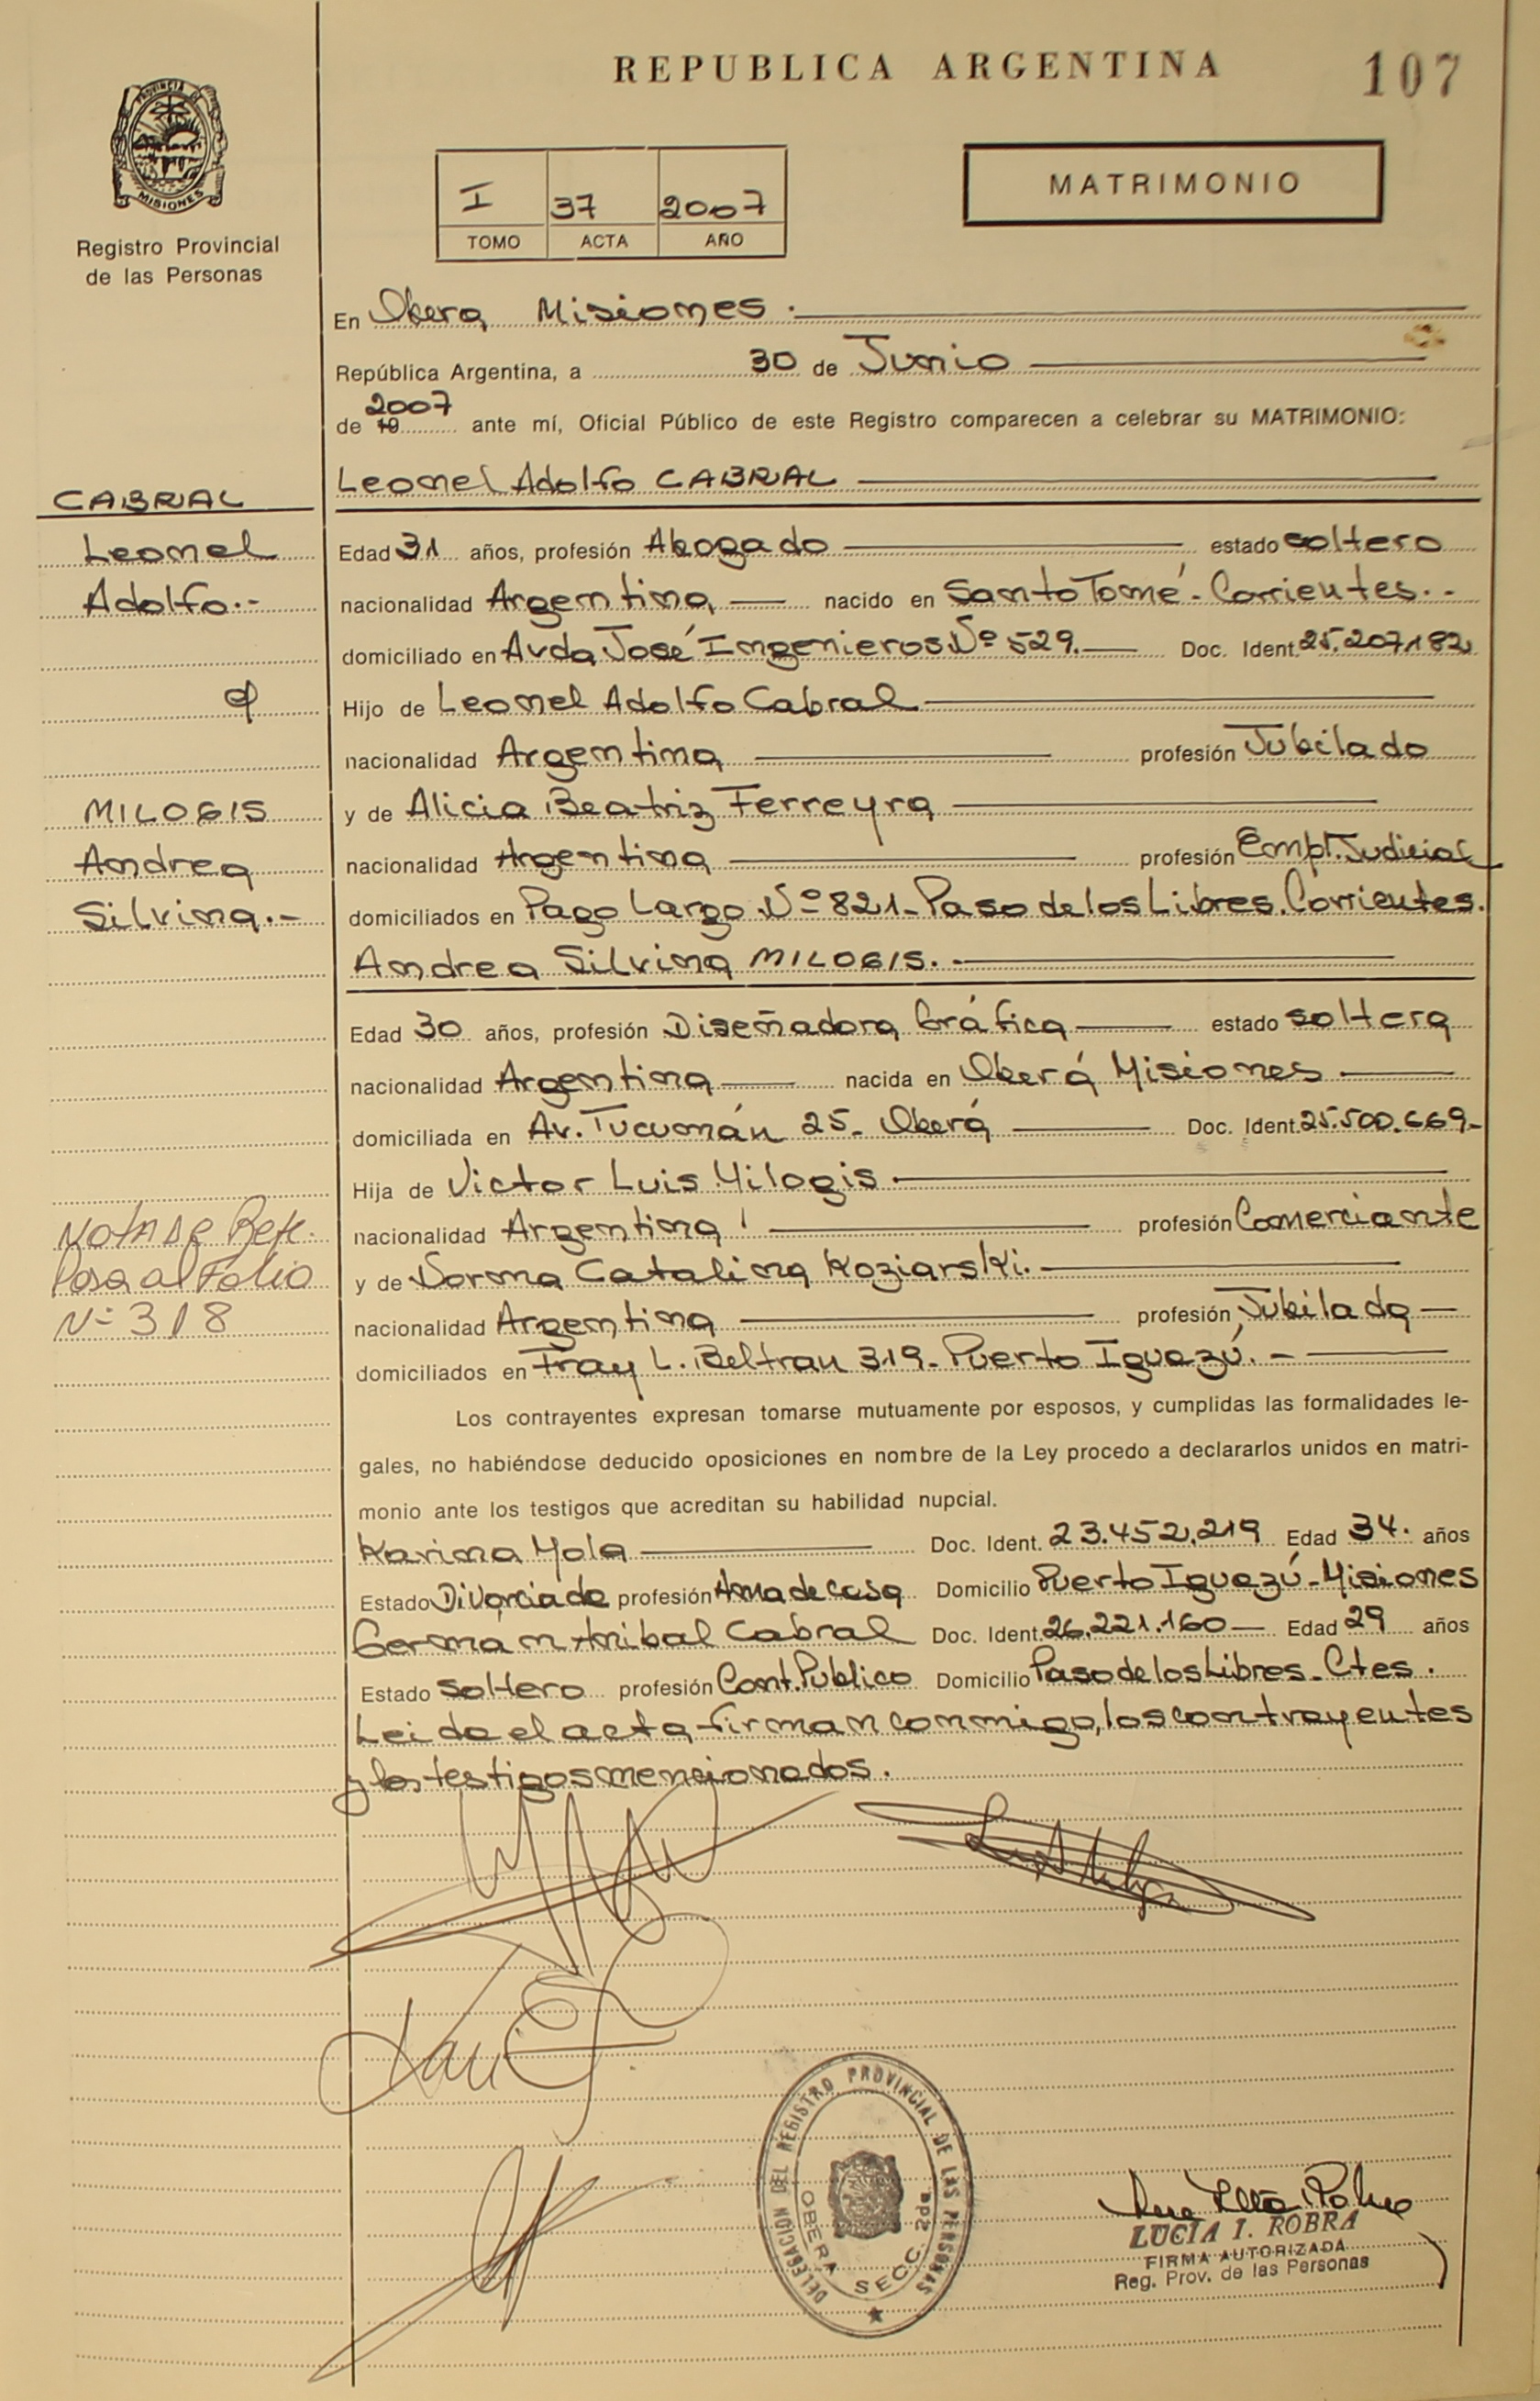 REPUBLICA ARGENTINA
107
PROVINCIA DE
MISIONES
Registro Provincial
de las Personas
I 37 2007
TOMO ACTA AÑO
MATRIMONIO
En Obera Misiones.
República Argentina, a 30 de Junio
2007
de 19 ante mí, Oficial Público de este Registro comparecen a celebrar su MATRIMONIO:
Leonel Adolfo CABRAL
Edad 31 años, profesión Abogado estado soltero
nacionalidad Argentina nacido en Santo Tomé - Corrientes.-
domiciliado en Avda José Ingenieros Nº 529. Doc. Ident. 25.207.182
Hijo de Leonel Adolfo Cabral
nacionalidad Argentina profesión Jubilado
y de Alicia Beatriz Ferreyra
nacionalidad Argentina profesión Empl. Judicial
domiciliados en Pago Largo Nº 821- Paso de los Libres. Corrientes.
Andrea Silvina MILOGIS.-
Edad 30 años, profesión Diseñadora Gráfica estado soltera
nacionalidad Argentina nacida en Oberá Misiones
domiciliada en Av. Tucumán 25- Oberá Doc. Ident. 25.500.669-
Hija de Victor Luis Milogis
nacionalidad Argentina profesión Comerciante
y de Norma Catalina Koziarski.
nacionalidad Argentina profesión Jubilada
domiciliados en Fray L. Beltran 319- Puerto Iguazú.-
Los contrayentes expresan tomarse mutuamente por esposos, y cumplidas las formalidades le-
gales, no habiéndose deducido oposiciones en nombre de la Ley procedo a declararlos unidos en matri-
monio ante los testigos que acreditan su habilidad nupcial.
Karina Mola Doc. Ident. 23.452.219 Edad 34. años
Estado Divorciada profesión Ama de casa Domicilio Puerto Iguazú - Misiones
Germán Anibal Cabral Doc. Ident. 26.221.160 Edad 29 años
Estado Soltero profesión Cont. Publico Domicilio Paso de los Libres - Ctes.
Leida el acta, firman conmigo, los contrayentes
y los testigos mencionados.
CABRAL
Leonel
Adolfo.-
MILOGIS
Andrea
Silvina.-
Nota de Refe.
Pasa al Folio
Nº 318
DELEGACION DEL REGISTRO PROVINCIAL DE LAS PERSONAS
OBERA SECC. 2da
LUCIA I. ROBRA
FIRMA AUTORIZADA
Reg. Prov. de las Personas